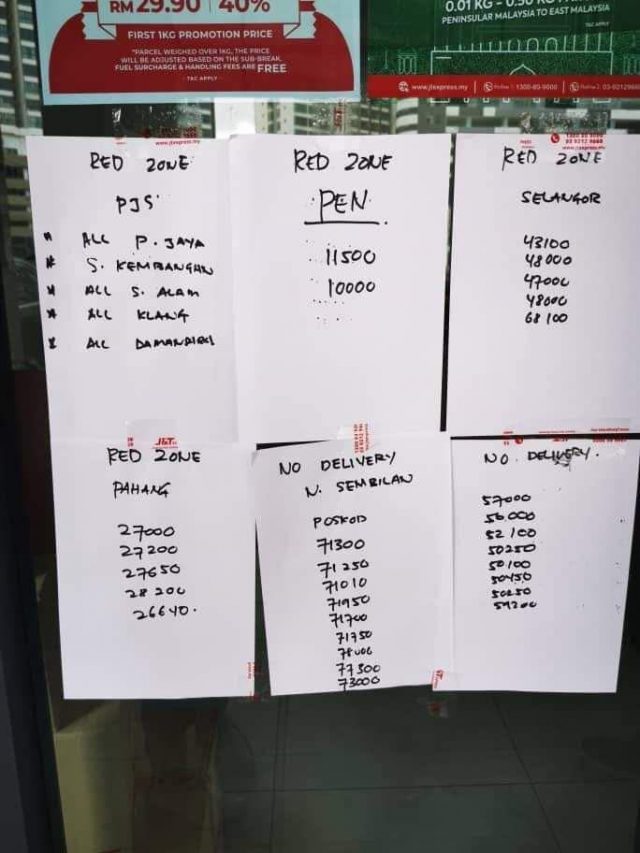 RM29.90 40%
FIRST 1KG PROMOTION PRICE
*PARCEL WEIGHED OVER 1KG, THE PRICE
WILL BE ADJUSTED BASED ON THE SUB-BREAK.
FUEL SURCHARGE & HANDLING FEES ARE FREE
T&C APPLY
PENINSULAR MALAYSIA TO EAST MALAYSIA
www.jtexpress.my
RED ZONE
PJS
* ALL P. JAYA
* S. KEMBANGAN
* ALL S. ALAM
* ALL KLANG
* ALL DAMANSARA
RED ZONE
PEN
11500
10000
RED ZONE
SELANGOR
43100
48000
47000
48000
68100
J&T
RED ZONE
PAHANG
27000
27200
27650
28200
26640.
NO DELIVERY
N. SEMBILAN
POSKOD
71300
71250
71010
71950
71700
71750
78000
77300
73000
NO. DELIVERY.
57000
56000
52100
50250
50100
50450
50250